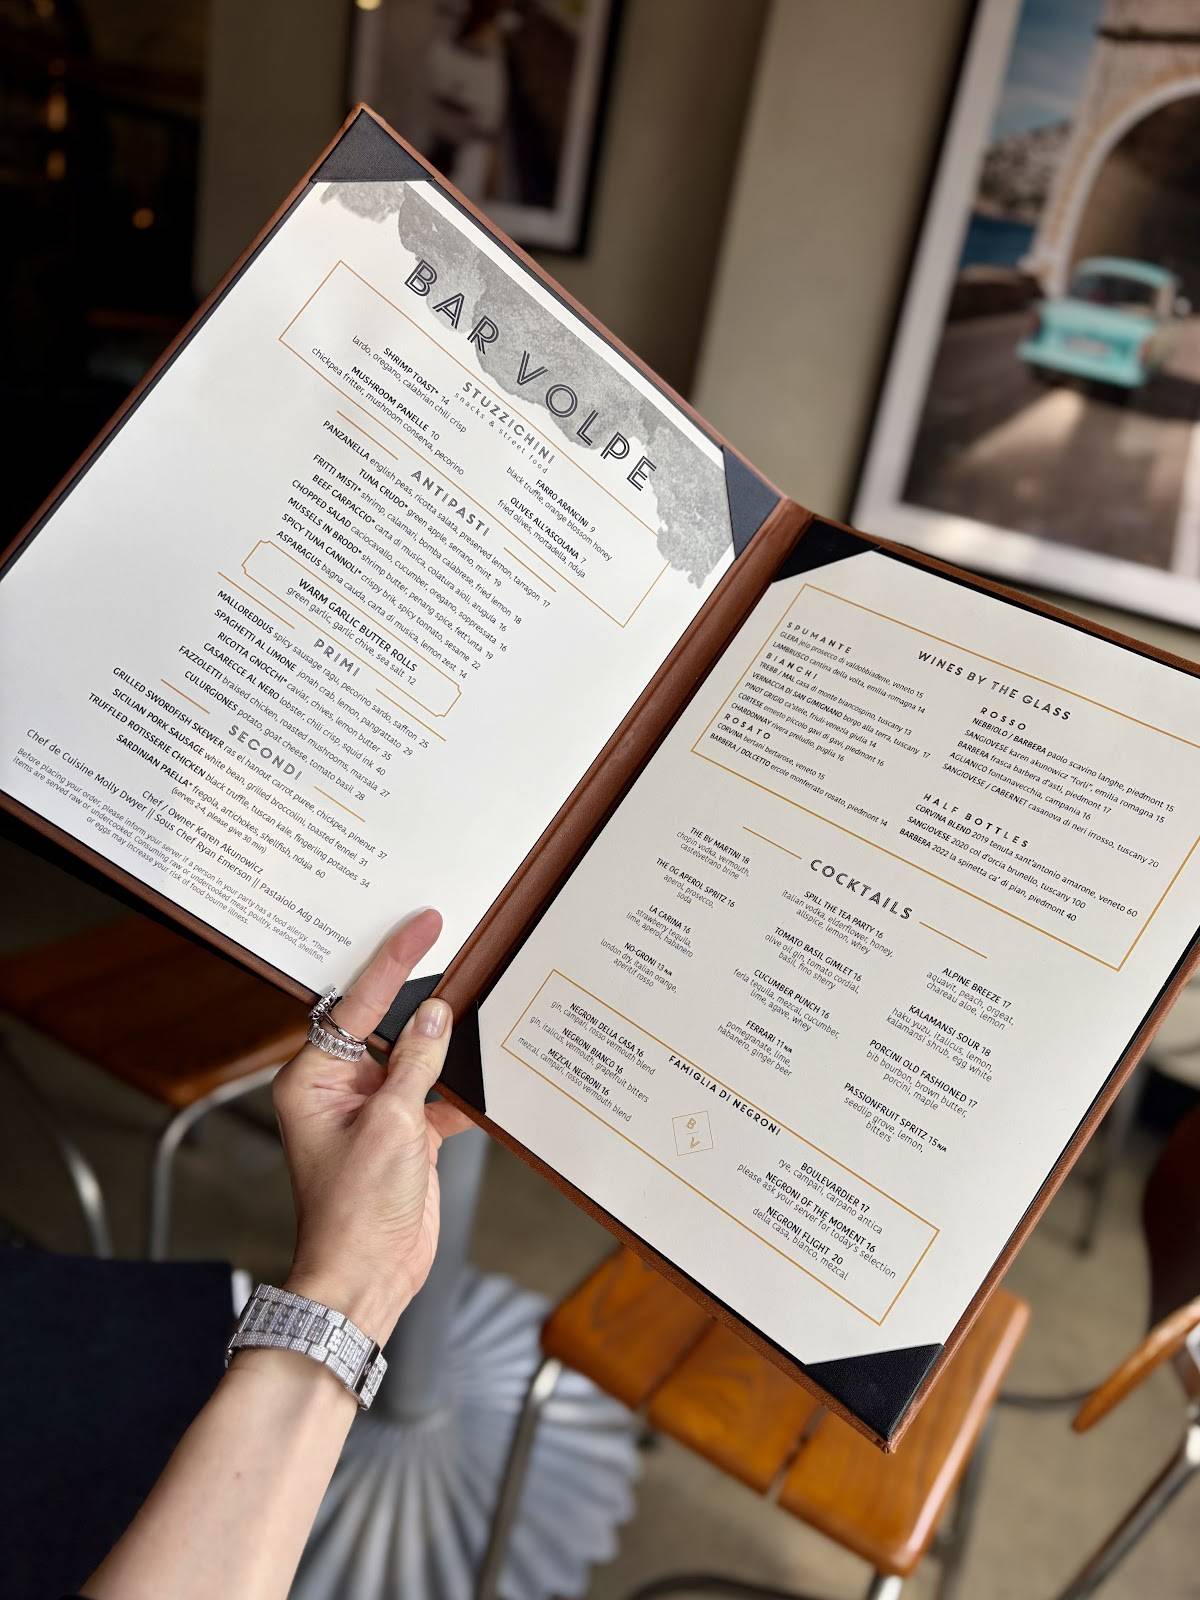 BAR VOLPE
STUZZICHINI
snacks & street food
SHRIMP TOAST* 14
lardo, oregano, calabrian chili crisp
MUSHROOM PANELLE 10
chickpea fritter, mushroom conserva, pecorino
FARRO ARANCINI 9
black truffle, orange blossom honey
OLIVES ALL'ASCOLANA 7
fried olives, mortadella, nduja
ANTIPASTI
PANZANELLA english peas, ricotta salata, preserved lemon, tarragon 17
TUNA CRUDO* green apple, serrano, mint 19
FRITTI MISTI* shrimp, calamari, bomba calabrese, fried lemon 18
BEEF CARPACCIO* carta di musica, colatura aioli, arugula 16
CHOPPED SALAD caciocavallo, cucumber, oregano, soppressata 16
MUSSELS IN BRODO* shrimp butter, penang spice, fett'unta 19
SPICY TUNA CANNOLI* crispy brik, spicy tonnato, sesame 22
ASPARAGUS bagna cauda, carta di musica, lemon zest 14
WARM GARLIC BUTTER ROLLS
green garlic, garlic chive, sea salt 12
PRIMI
MALLOREDDUS spicy sausage ragu, pecorino sardo, saffron 25
SPAGHETTI AL LIMONE jonah crab, lemon, pangrattato 29
RICOTTA GNOCCHI* caviar, chives, lemon butter 35
CASARECCE AL NERO lobster, chili crisp, squid ink 40
FAZZOLETTI braised chicken, roasted mushrooms, marsala 27
CULURGIONES potato, goat cheese, tomato basil 28
SECONDI
GRILLED SWORDFISH SKEWER ras el hanout carrot puree, chickpea, pinenut 37
SICILIAN PORK SAUSAGE white bean, grilled broccolini, toasted fennel 31
TRUFFLED ROTISSERIE CHICKEN black truffle, tuscan kale, fingerling potatoes 34
SARDINIAN PAELLA* fregola, artichokes, shellfish, nduja 60
(serves 2-4, please give 30 min)
Chef / Owner Karen Akunowicz
Chef de Cuisine Molly Dwyer || Sous Chef Ryan Emerson || Pastaiolo Adg Dalrymple
Before placing your order, please inform your server if a person in your party has a food allergy. *These
items are served raw or undercooked. Consuming raw or undercooked meat, poultry, seafood, shellfish,
or eggs may increase your risk of food bourne illness.
WINES BY THE GLASS
SPUMANTE
GLERA jeio prosecco di valdobbiadene, veneto 15
LAMBRUSCO cantina della volta, emilia-romagna 14
BIANCHI
TREBB / MAL casa di monte biancospino, tuscany 13
VERNACCIA DI SAN GIMIGNANO borgo alla terra, tuscany 17
PINOT GRIGIO ca'stele, friuli-venezia giulia 14
CORTESE ernesto piccolo gavi di gavi, piedmont 16
CHARDONNAY rivera preludio, puglia 16
ROSATO
CORVINA bertani bertarose, veneto 15
BARBERA / DOLCETTO ercole monferrato rosato, piedmont 14
ROSSO
NEBBIOLO / BARBERA paolo scavino langhe, piedmont 15
SANGIOVESE karen akunowicz "forli", emilia romagna 15
BARBERA frascà barbera d'asti, piedmont 17
AGLIANICO fontanavecchia, campania 16
SANGIOVESE / CABERNET casanova di neri irrosso, tuscany 20
HALF BOTTLES
CORVINA BLEND 2019 tenuta sant'antonio amarone, veneto 60
SANGIOVESE 2020 col d'orcia brunello, tuscany 100
BARBERA 2022 la spinetta ca' di pian, piedmont 40
COCKTAILS
THE BV MARTINI 18
chopin vodka, vermouth,
castelvetrano brine
THE OG APEROL SPRITZ 16
aperol, prosecco,
soda
LA CARINA 16
strawberry tequila,
lime, aperol, habanero
NO-GRONI 13 N/A
london dry, italian orange,
aperitif rosso
SPILL THE TEA PARTY 16
italian vodka, elderflower, honey,
allspice, lemon, whey
TOMATO BASIL GIMLET 16
olive oil gin, tomato cordial,
basil, fino sherry
CUCUMBER PUNCH 16
feria tequila, mezcal, cucumber,
lime, agave, whey
FERRARI 11 N/A
pomegranate, lime,
habanero, ginger beer
ALPINE BREEZE 17
aquavit, peach, orgeat,
chareau aloe, lemon
KALAMANSI SOUR 18
haku yuzu, italicus, lemon,
kalamansi shrub, egg white
PORCINI OLD FASHIONED 17
bib bourbon, brown butter,
porcini, maple
PASSIONFRUIT SPRITZ 15 N/A
seedlip grove, lemon,
bitters
FAMIGLIA DI NEGRONI
NEGRONI DELLA CASA 16
gin, campari, rosso vermouth blend
NEGRONI BIANCO 16
gin, italicus, vermouth, grapefruit bitters
MEZCAL NEGRONI 16
mezcal, campari, rosso vermouth blend
B
V
BOULEVARDIER 17
rye, campari, carpano antica
NEGRONI OF THE MOMENT 16
please ask your server for today's selection
NEGRONI FLIGHT 20
della casa, bianco, mezcal